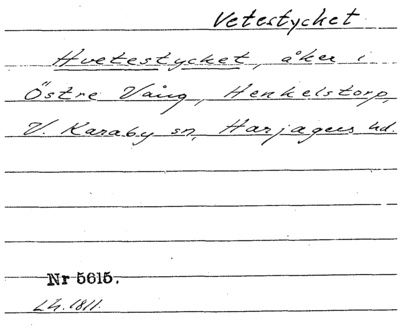 Vetestycket
Hvetestycket, åker i
Östre Vång, Henkelstorp,
V. Karaby sn, Harjagers hd.
Nr 5615.
LH. 1811.